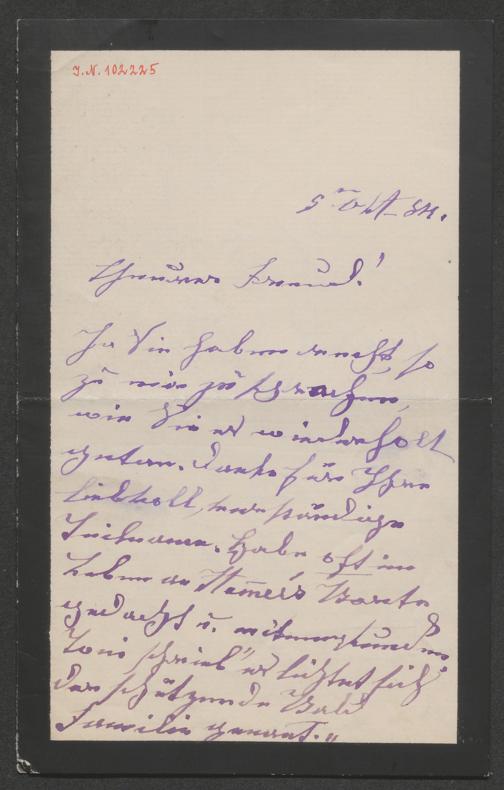 I.N. 102225
5 Okt 84.
Theurer Freund!
Ja Sie haben recht, so
zu mir zu sprechen,
wie Sie es wiederholt
gethan. Danke für Ihre
liebevoll, verständige
Teilname. Habe oft im
Leben an Worte
gedacht u. mitempfunden
"es lichtet sich
der schützende Wald
Familie genant."